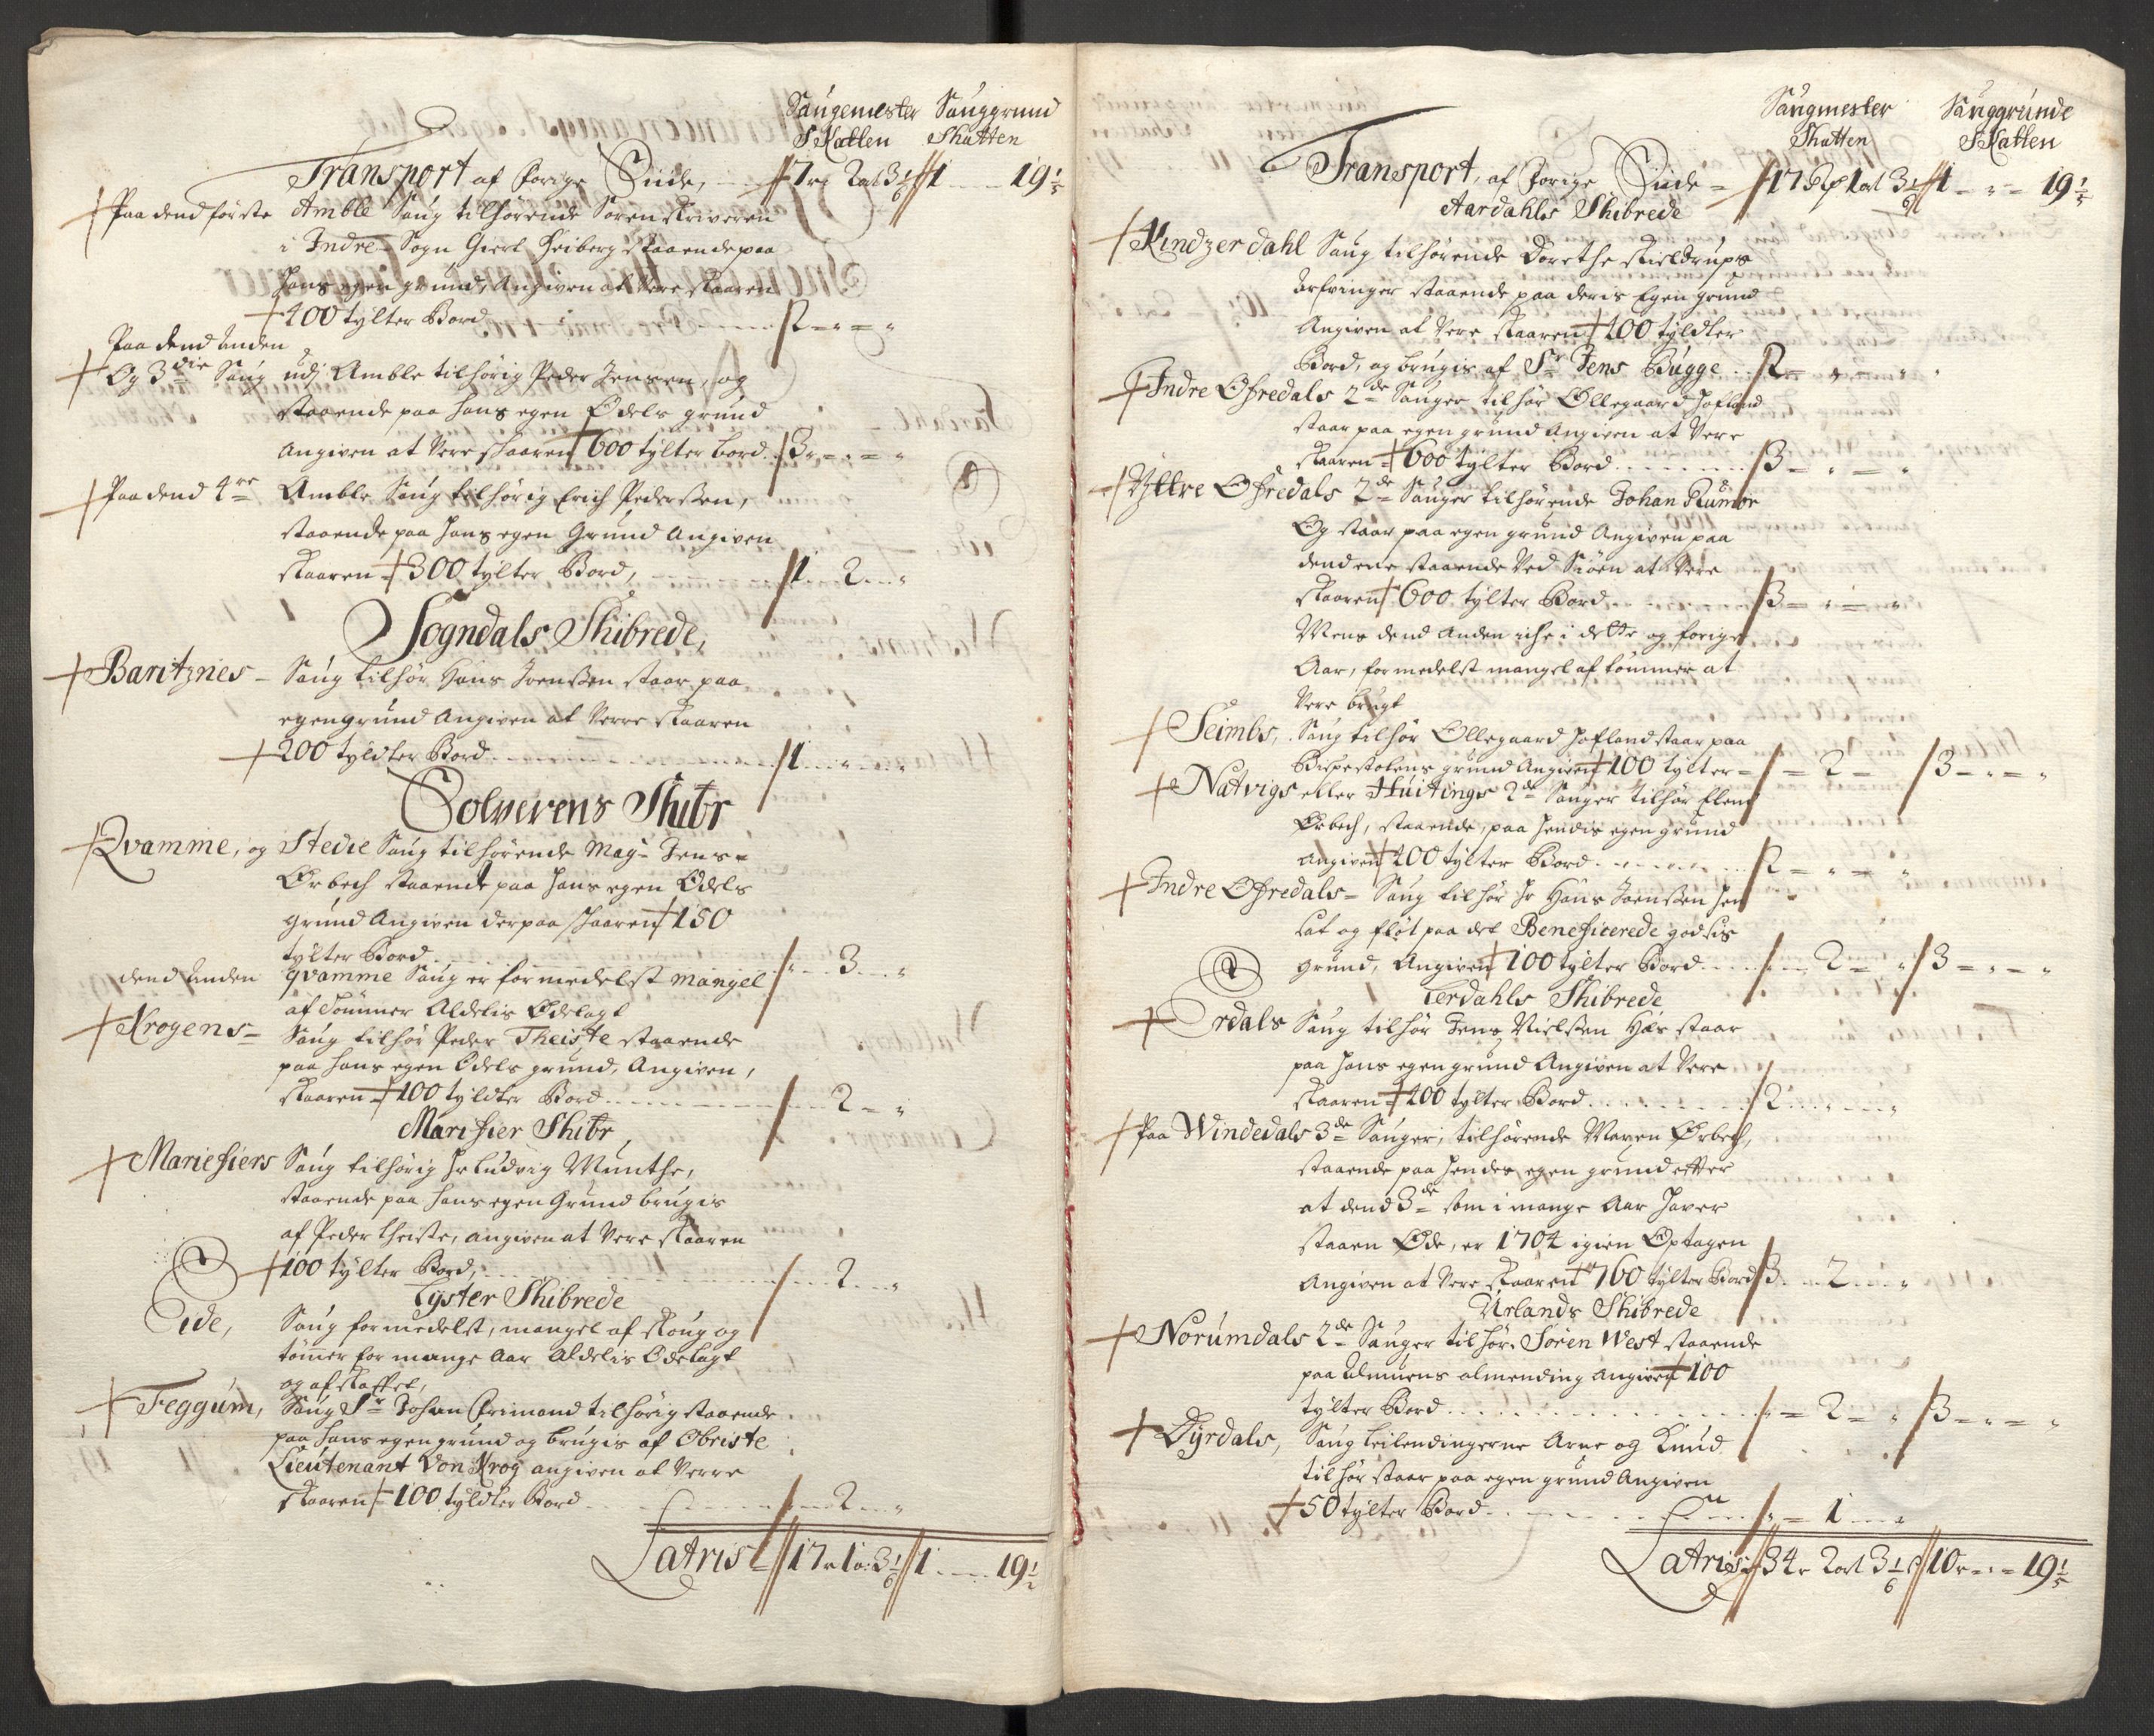 Saugemester Sauggrund
Skatten Skatten
Transport af forige Siide, 7 rd 2 ort 3 1/6 1 — 19 1/5
Paa dend første Amble Saug tilhørende Sorenskriveren
i Indre Sogn Giert Heiberg staaende paa
hans egen grund, Angiven at were skaaren
400 tylter Bord 2 — „ — „
Paa dend Anden
Og 3die Saug udj Amble tilhørig Peder Jensen, og
staaende paa hans egen Odels grund
angiven at were skaaren 600 tylter bord 3 — „ — „
Paa dend 4re Amble Saug tilhørig Erich Pederssen,
staaende paa hans egen Grund Angiven
skaaren 300 tylter Bord, 1 – 2 – „
Sogndals Skibrede,
Baritznes – Saug tilhør Hans Joenssen staar paa
egen grund Angiven at werre skaaren
200 tyldter Bord 1 – „ – „
Solverens Skibr
Qvamme, og Stedie Saug tilhørende Mag: Jens
Ørbech staaende paa hans egen Odels
grund Angiven derpaa skaaren 150
tylter Bord „ – 3 – „
dend Anden qvamme Saug er formedelst mangel
af Tømmer Aldelis Ødelagt
Krogens – Saug tilhør Peder Theiste staaende
paa hans egen Odels grund, Angiven,
skaaren 100 tyldter Bord – 2 – „
Marifier Skibr
Mariefiers Saug tilhørig Hr Ludvig Munthe,
staaende paa hans egen Grund brugis
af Peder theiste, angiven at were skaaren
100 tylter Bord, – 2 – „
Lyster Skibrede
Eide, Saug formedelst, mangel af skoug og
tømer for mange Aar Aldelis Ødelagt
og afskaffet,
Feggum, Saug Sr Johan Frimand tilhørig staaende
paa hans egen grund og brugis af Obriste
Lieutenant Von Krog angiven at werre
skaaren 100 tyldter Bord – 2 – „
Latris 17 r 1 o: 3 1/6 1 — 19 1/5
Saugmester Sauggrunde
Skatten Skatten
Transport, af Forige Siide – 17 Rd 1 ort 3 1/6 1 – „ – 19 1/5
Aardahls Skibrede
Kindzerdahl Saug tilhørende Dorethe Kieldrups
Arfvinger staaende paa deris Egen grund
Angiven at were skaaren 400 tyldter
Bord, og brugis af Sr Jens Bugge 2 – „ – „
Indre Ofredals 2de Sauger tilhør Ollegaard Hofland
staar paa egen grund Angiven at were
skaaren 600 tylter Bord 3 – „ – „
Yttre Ofredals 2de Sauger tilhørende Johan Rumor
Og staar paa egen grund Angiven paa
dend ene staaende ved Siøen at were
skaaren 600 tylter Bord 3 – „ – „
Mens dend anden iche i dette og forige
Aar, formedelst mangel af tømmer at
were brugt
Seimbs, Saug tilhør Ollegaard Hofland staar paa
Bispestolens grund Angiven 100 tylter – 2 – 3 – „ – „
Natvigs eller Huitings 2de Sauger tilhør Elene
Ørbech, staaende, paa hendis egen grund
angiven 400 tylter Bord 2 – „ – „
Indre Ofredals – Saug tilhør Hr Hans Joenssen hen
sat og fløt paa det Beneficerede godsis
grund, Angiven 100 tylter Bord – 2 – „ 3 – „ – „
Lerdahls Skibrede
Erdals Saug tilhør Jens Nielssen Hæs staar
paa hans egen grund Angiven at were
skaaren 400 tylter Bord 2 – „ – „
Paa Windedals 3de Sauger, tilhørende Maren Ørbech,
staaende paa hendes egen grund efter
at dend 3de som i mange Aar haver
staaen Øde, er 1704 igien Optagen
Angiven at were skaaren 760 tylter Bord 3 – 2 – „
Urlands Skibrede
Norumdals 2de Sauger tilhør Søren West staaende
paa Almuens almending angiven 100
tylter Bord „ – 2 – „ 3 – „ – „
Dyrdals, Saug leilendingerne Arne og Knud
tilhør staar paa egen grund Angiven
50 tylter Bord „ – 1 – „
Latris 34 r 2 ort 3 1/6 s 10 r – „ – 19 1/5